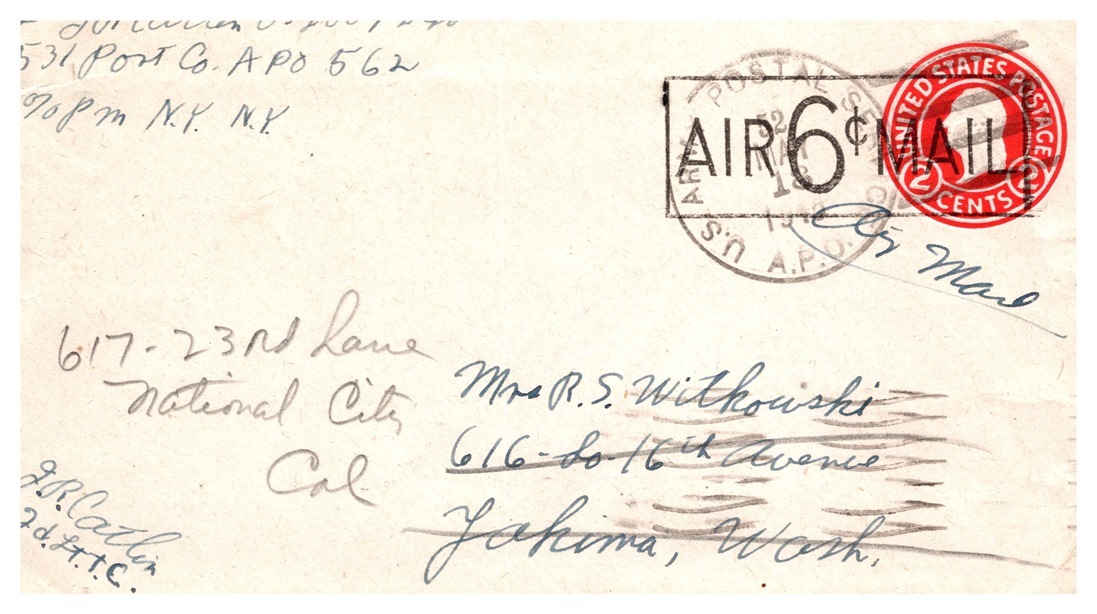 531 Port Co. APO 562
℅ P m N.Y. N.Y.
U.S. ARMY POSTAL
MAY
18
A.P.O.
AIR 6¢ MAIL
UNITED STATES POSTAGE
2 CENTS 2
Air Mail
617-23rd Lane
National City
Cal
Mrs R. S. Witkowski
616-So-16th Avenue
Yakima, Wash.
J.R. Catlin
2d. Lt. T.C.